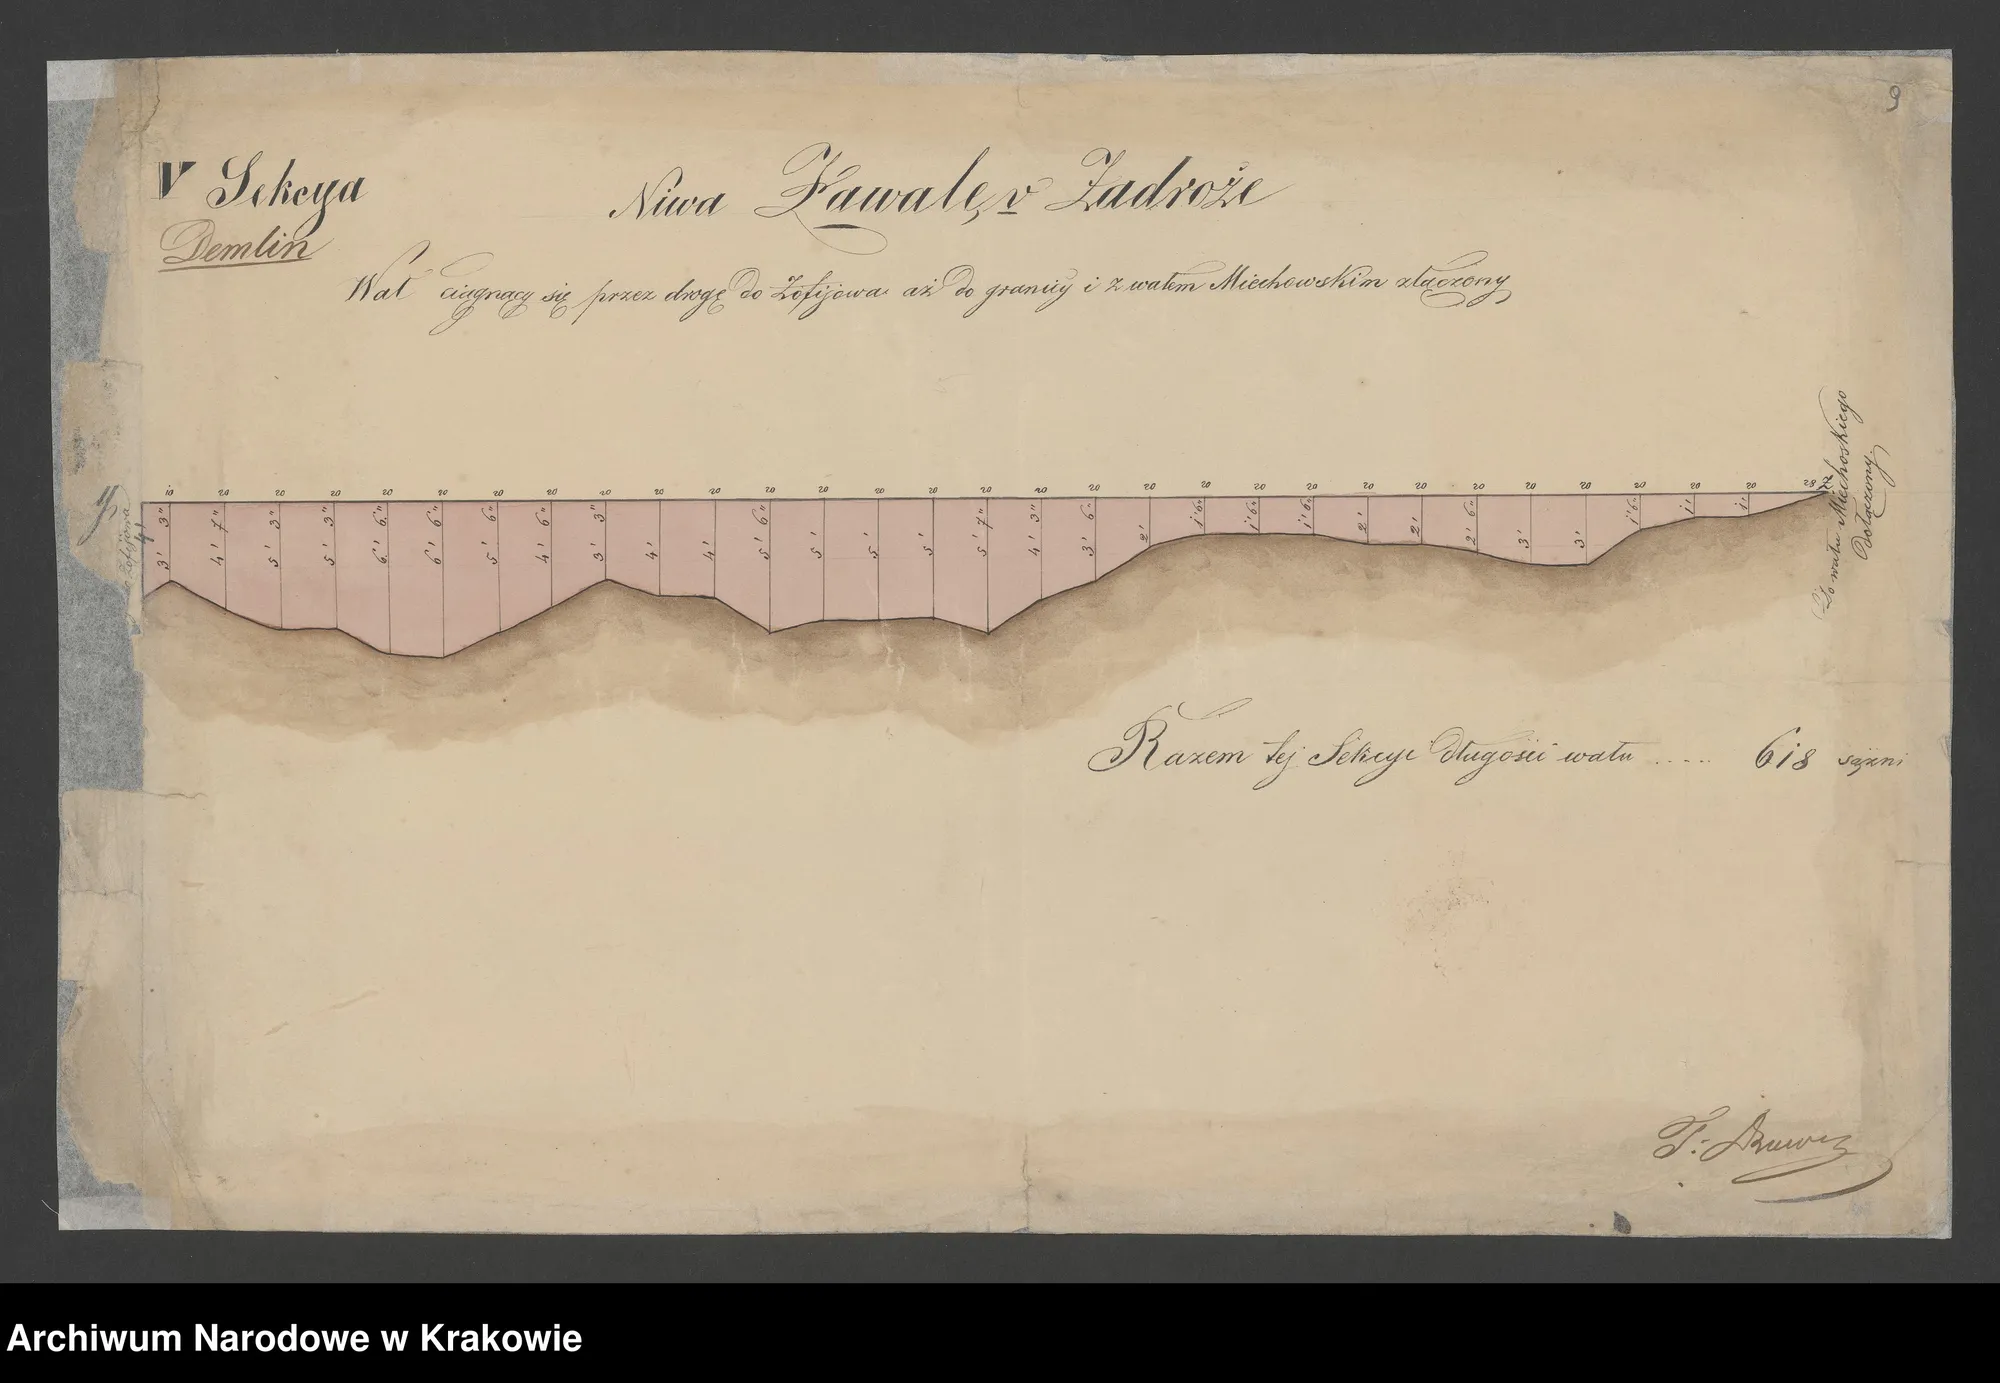 9
V Sekcya
Demlin
Niwa Zawale, v Zadroże
Wał ciągnący się przez drogę do Zofijowa aż do granicy i z wałem Miechowskim złączony
10 20 20 20 20 20 20 20 20 20 20 20 20 20 20 20 20 20 20 20 20 20 20 20 20 20 20 20 20 20 28
4' 3' 3" 4' 7" 5' 3" 5' 3" 6' 6" 6' 6" 5' 6" 4' 6" 3' 3" 4' 4' 5' 6" 5' 5' 5' 5' 7" 4' 3" 3' 6" 2' 1' 6" 1' 6" 1' 6" 2' 2' 2' 6" 3' 3' 1' 6" 1' 1'
Zofijowa
Do wału Miechoskiego
dołączony.
Razem tej Sekcyi długości wału ..... 618 sążni
Archiwum Narodowe w Krakowie